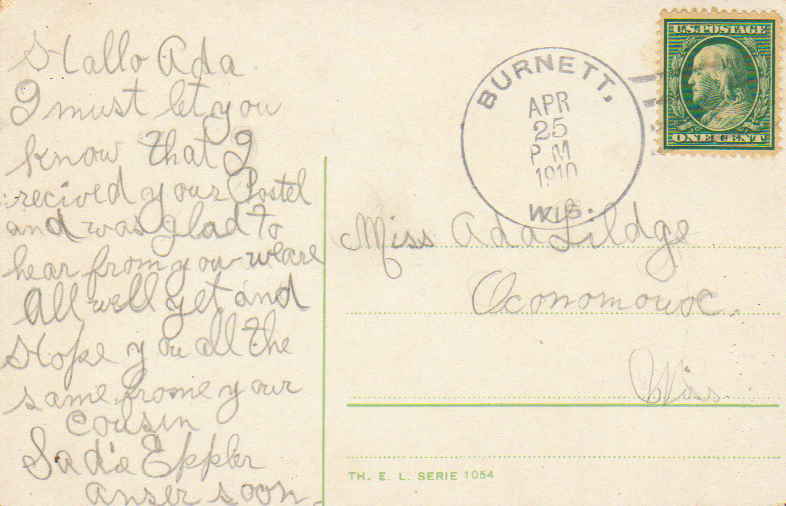 Hallo Ada
I must let you
know that I
recived your Postel
and was glad to
hear from you we are
All well yet and
Hope you all the
same frome your
cousin
Sadie Eppler
anser soon.
BURNETT,
APR
25
P M
1910
WIS.
U.S. POSTAGE
ONE CENT
Miss Ada Lildge
Oconomowoc.
Wis.
TH. E. L. SERIE 1054